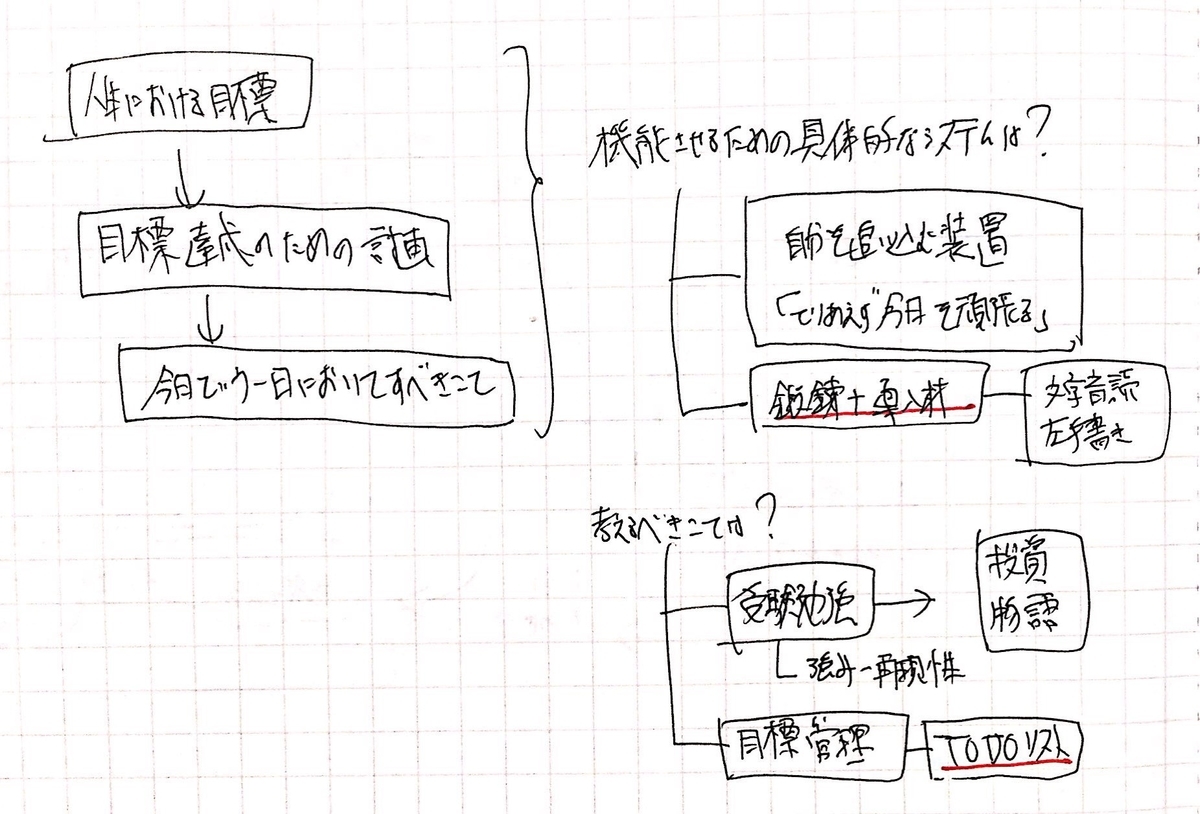 人生における目標
目標達成のための計画
今日という一日においてすべきこと
機能させるための具体的なシステムは?
自分を追い込む装置
「とりあえず今日を頑張る」
鍛錬+導入材
文字音読
左手書き
教えるべきことは?
受験勉強
投資
強み-再現性
目標管理
TODOリスト